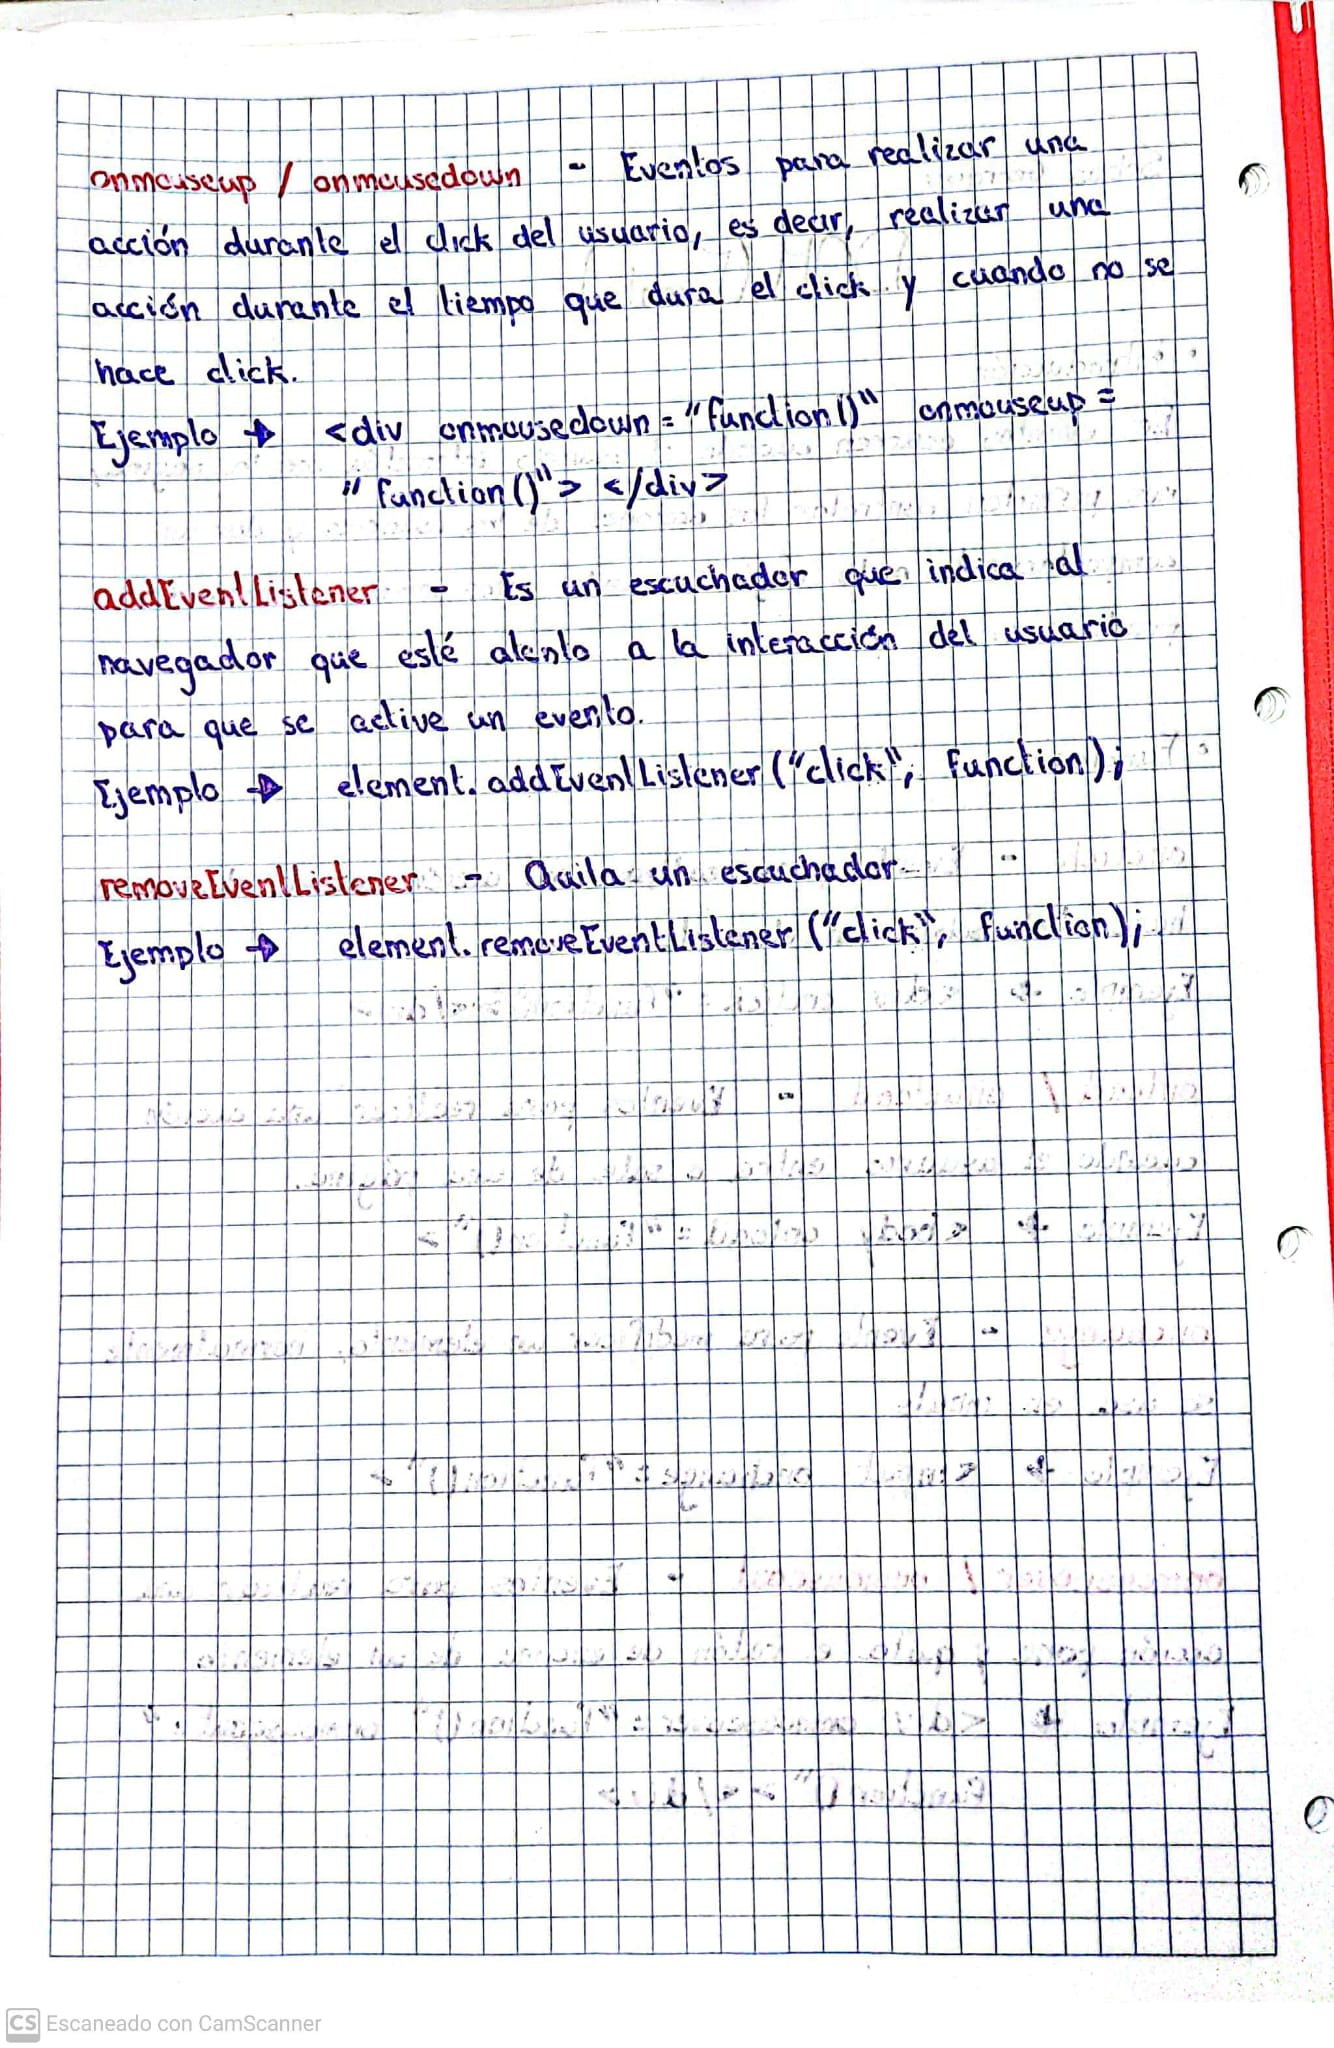 onmouseup / onmousedown - Eventos para realizar una
acción durante el click del usuario, es decir, realizar una
acción durante el tiempo que dura el click y cuando no se
hace click.
Ejemplo → <div onmousedown = "function()" onmouseup =
"function()"> </div>
addEventListener - Es un escuchador que indica al
navegador que esté atento a la interacción del usuario
para que se active un evento.
Ejemplo → element.addEventListener("click", function);
removeEventListener - Quita un escuchador
Ejemplo → element.removeEventListener("click", function);
CS Escaneado con CamScanner